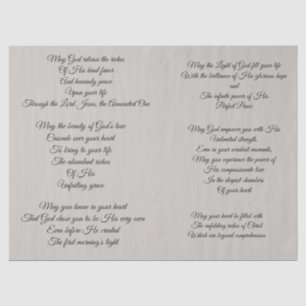 May God release the riches
Of His kind favor
And heavenly peace
Upon your life
Through the Lord Jesus, the Anointed One
May the beauty of God's love
Cascade over your heart
To bring to your life
The abundant riches
Of His
Unfailing grace
May you know in your heart
That God chose you to be His very own
Even before He created
The first morning's light
May the Light of God fill your life
With the brilliance of His glorious hope
and
The infinite power of His
Perfect Peace
May God empower you with His
Unlimited strength
Even in your weakest moments,
May you experience the power of
His compassionate love
In the deepest chambers
Of your heart
May your heart be filled with
The unfolding riches of Christ
Which are beyond comprehension